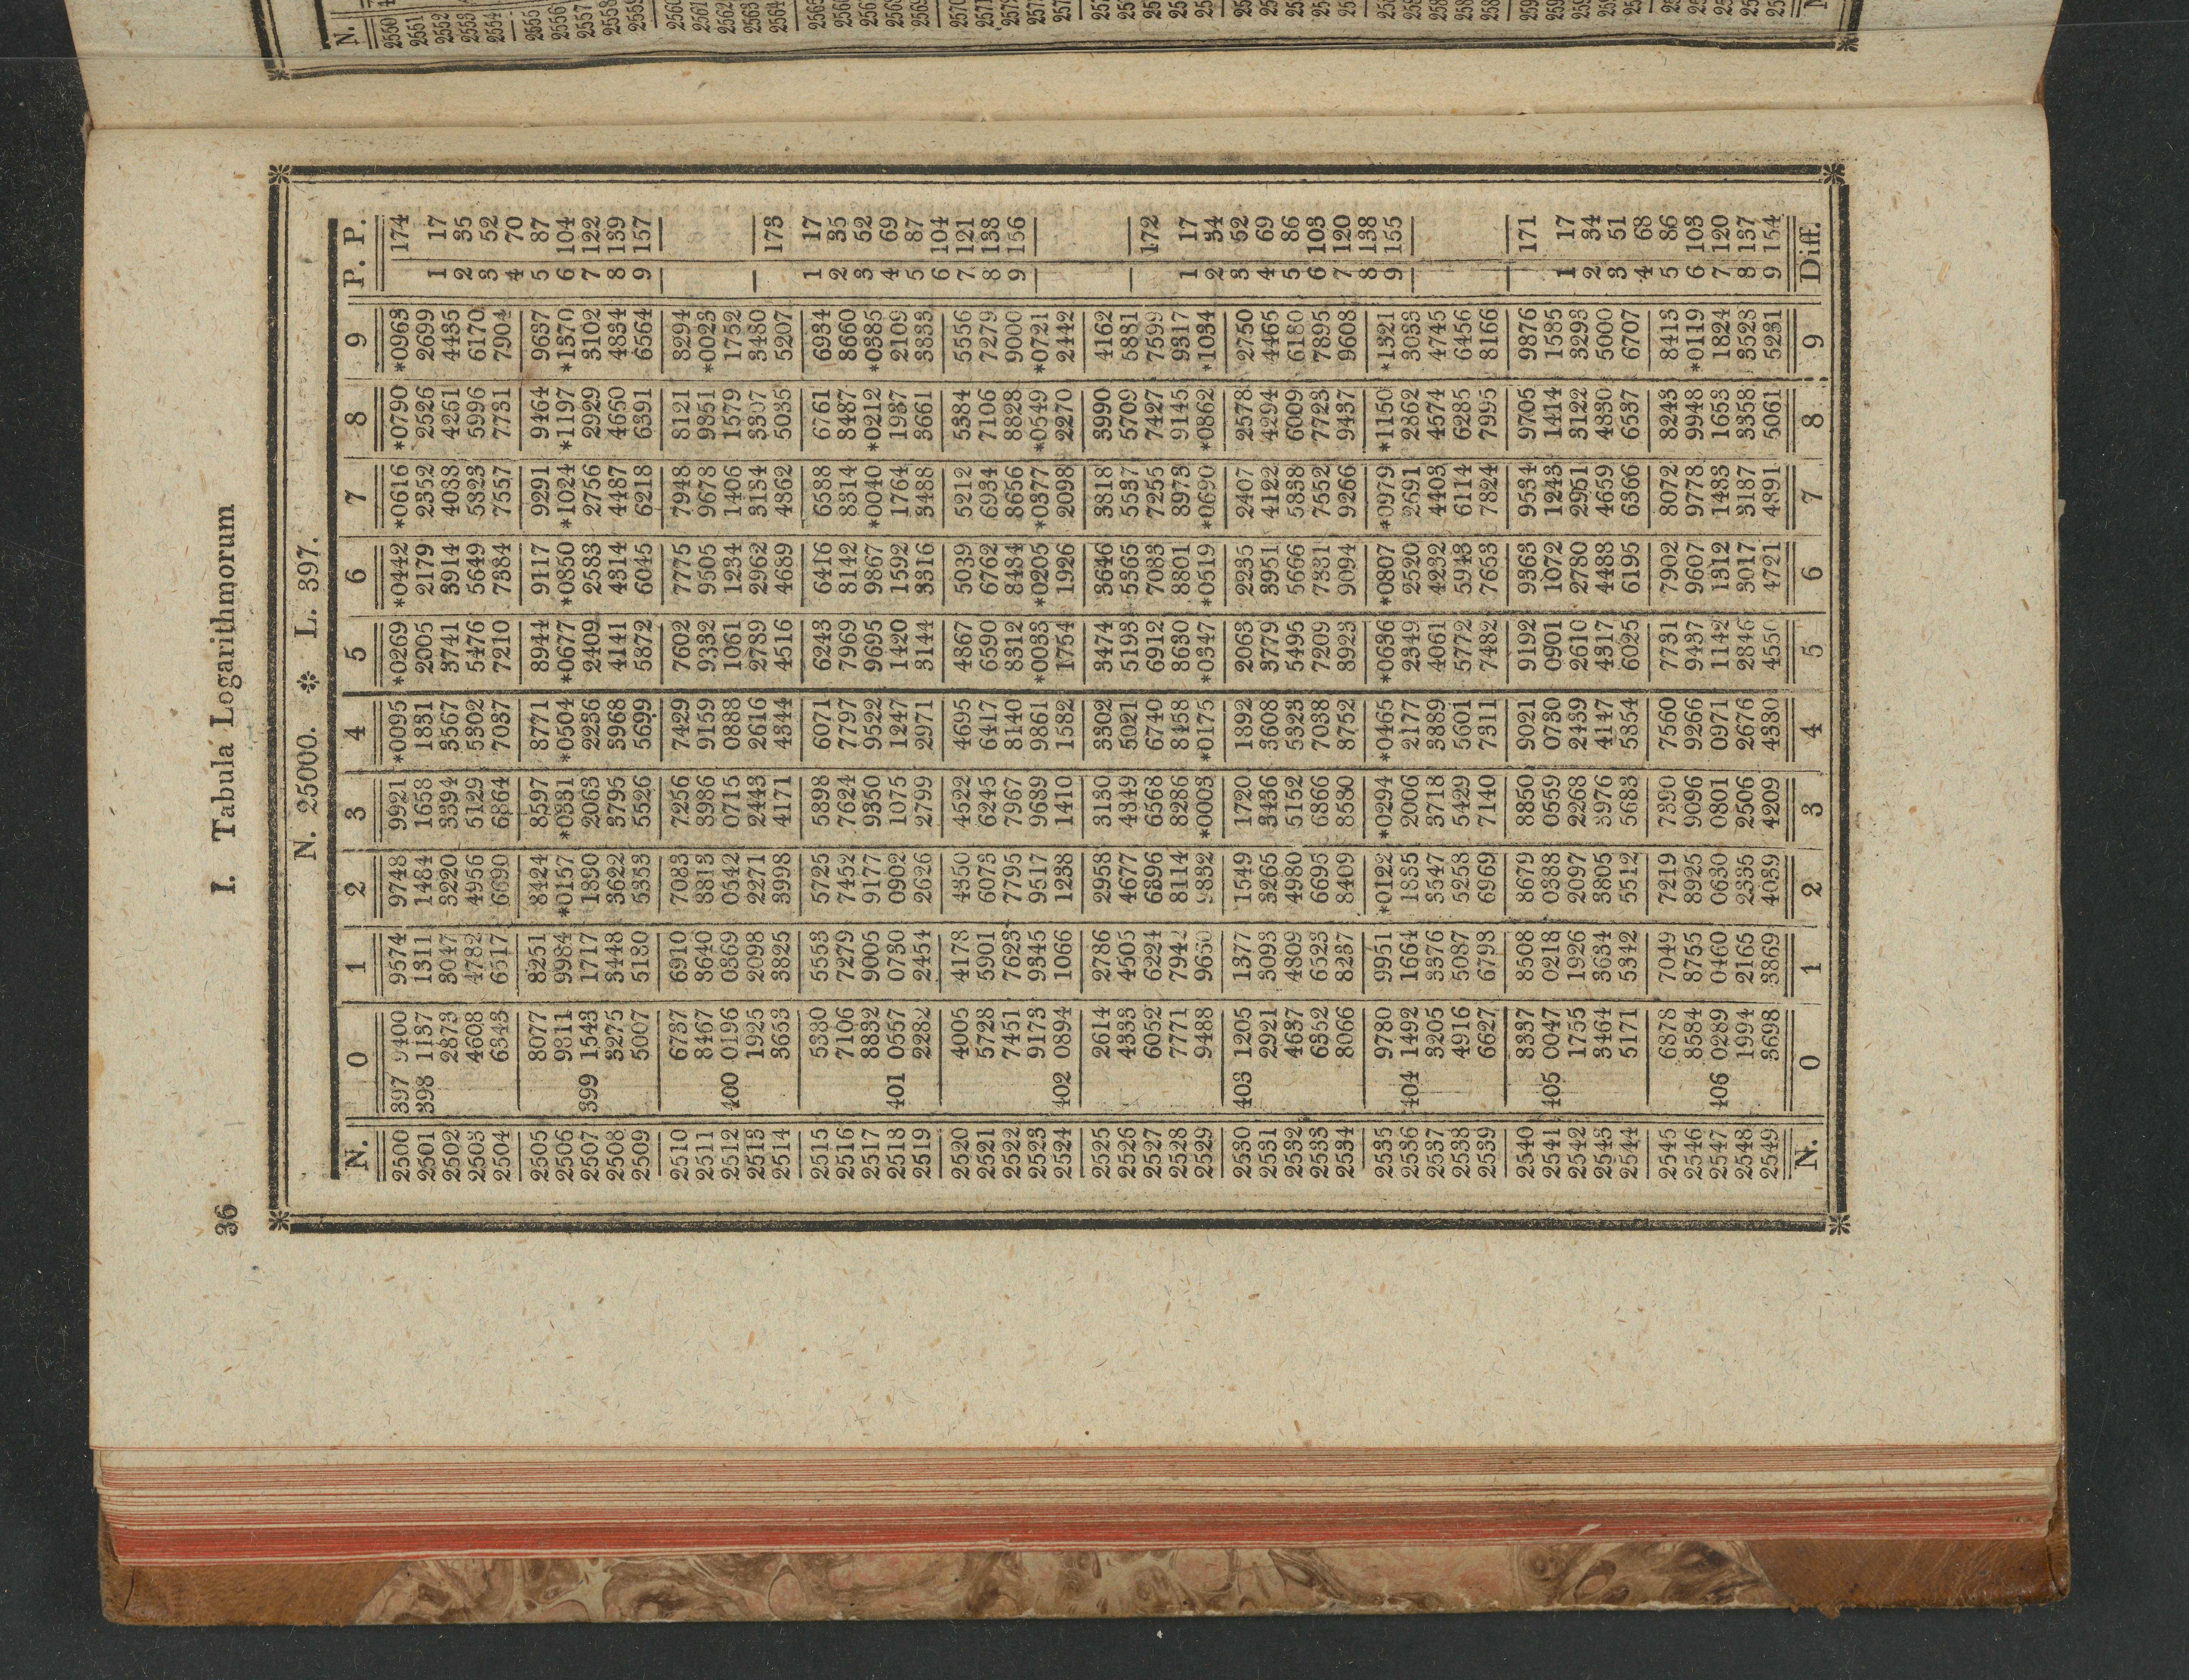 N.
2550
2551
2552
2553
2554
2555
2556
2557
2558
2559
2560
2561
2562
2563
2564
36 I. Tabula Logarithmorum
N. 25000. ❉ L. 397.
N. 0 1 2 3 4 5 6 7 8 9 P. P.
2500 397 9400 9574 9748 9921 *0095 *0269 *0442 *0616 *0790 *0963
2501 398 1137 1311 1484 1658 1831 2005 2179 2352 2526 2699
2502 2873 3047 3220 3394 3567 3741 3914 4088 4261 4435
2503 4608 4782 4956 5129 5302 5476 5649 5823 5996 6170
2504 6343 6517 6690 6864 7037 7210 7384 7557 7731 7904
2505 8077 8251 8424 8597 8771 8944 9117 9291 9464 9637
2506 9811 9984 *0157 *0331 *0504 *0677 *0850 *1024 *1197 *1370
2507 399 1543 1717 1890 2063 2236 2409 2583 2756 2929 3102
2508 3275 3448 3622 3795 3968 4141 4314 4487 4660 4834
2509 5007 5180 5353 5526 5699 5872 6045 6218 6391 6564
2510 6737 6910 7083 7256 7429 7602 7775 7948 8121 8294
2511 8467 8640 8813 8986 9159 9332 9505 9678 9851 *0023
2512 400 0196 0369 0542 0715 0888 1061 1234 1406 1579 1752
2513 1925 2098 2271 2443 2616 2789 2962 3134 3307 3480
2514 3653 3825 3998 4171 4344 4516 4689 4862 5035 5207
2515 5380 5553 5725 5898 6071 6243 6416 6588 6761 6934
2516 7106 7279 7452 7624 7797 7969 8142 8314 8487 8660
2517 8832 9005 9177 9350 9522 9695 9867 *0040 *0212 *0385
2518 401 0557 0730 0902 1075 1247 1420 1592 1764 1937 2109
2519 2282 2454 2626 2799 2971 3144 3316 3488 3661 3833
2520 4005 4178 4350 4522 4695 4867 5039 5212 5384 5556
2521 5728 5901 6073 6245 6417 6590 6762 6934 7106 7279
2522 7451 7623 7795 7967 8140 8312 8484 8656 8828 9000
2523 9173 9345 9517 9689 9861 *0033 *0205 *0377 *0549 *0721
2524 402 0894 1066 1238 1410 1582 1754 1926 2098 2270 2442
2525 2614 2786 2958 3130 3302 3474 3646 3818 3990 4162
2526 4333 4505 4677 4849 5021 5193 5365 5537 5709 5881
2527 6052 6224 6396 6568 6740 6912 7083 7255 7427 7599
2528 7771 7942 8114 8286 8458 8630 8801 8973 9145 9317
2529 9488 9660 9832 *0003 *0175 *0347 *0519 *0690 *0862 *1034
2530 403 1205 1377 1549 1720 1892 2063 2235 2407 2578 2750
2531 2921 3093 3265 3436 3608 3779 3951 4122 4294 4465
2532 4637 4809 4980 5152 5323 5495 5666 5838 6009 6180
2533 6352 6523 6695 6866 7038 7209 7381 7552 7723 7895
2534 8066 8237 8409 8580 8752 8923 9094 9266 9437 9608
2535 9780 9951 *0122 *0294 *0465 *0636 *0807 *0979 *1150 *1321
2536 404 1492 1664 1835 2006 2177 2349 2520 2691 2862 3033
2537 3205 3376 3547 3718 3889 4061 4232 4403 4574 4745
2538 4916 5087 5258 5429 5601 5772 5943 6114 6285 6456
2539 6627 6798 6969 7140 7311 7482 7653 7824 7995 8166
2540 8337 8508 8679 8850 9021 9192 9363 9534 9705 9876
2541 405 0047 0218 0388 0559 0730 0901 1072 1243 1414 1585
2542 1755 1926 2097 2268 2439 2610 2780 2951 3122 3293
2543 3464 3634 3805 3976 4147 4317 4488 4659 4830 5000
2544 5171 5342 5512 5683 5854 6025 6195 6366 6537 6707
2545 6878 7049 7219 7390 7560 7731 7902 8072 8243 8413
2546 8584 8755 8925 9096 9266 9437 9607 9778 9948 *0119
2547 406 0289 0460 0630 0801 0971 1142 1312 1483 1653 1824
2548 1994 2165 2335 2506 2676 2846 3017 3187 3358 3528
2549 3698 3869 4039 4209 4380 4550 4721 4891 5061 5231
N. 0 1 2 3 4 5 6 7 8 9 Diff.
174
1 17
2 35
3 52
4 70
5 87
6 104
7 122
8 139
9 157
173
1 17
2 35
3 52
4 69
5 87
6 104
7 121
8 138
9 156
172
1 17
2 34
3 52
4 69
5 86
6 103
7 120
8 138
9 155
171
1 17
2 34
3 51
4 68
5 86
6 103
7 120
8 137
9 154